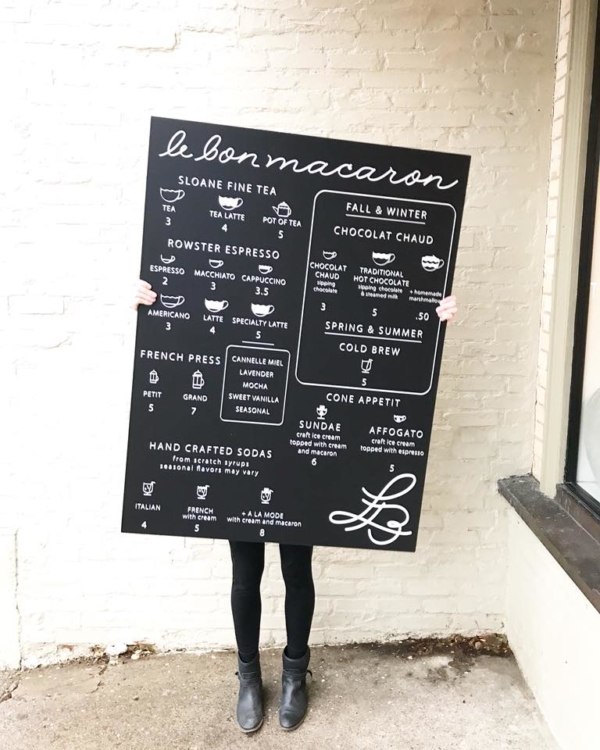 le bon macaron
SLOANE FINE TEA
TEA
3
TEA LATTE
4
POT OF TEA
5
ROWSTER ESPRESSO
ESPRESSO
2
MACCHIATO
3
CAPPUCCINO
3.5
AMERICANO
3
LATTE
4
SPECIALTY LATTE
5
CANNELLE MIEL
LAVENDER
MOCHA
SWEET VANILLA
SEASONAL
FRENCH PRESS
PETIT
5
GRAND
7
HAND CRAFTED SODAS
from scratch syrups
seasonal flavors may vary
ITALIAN
4
FRENCH
with cream
5
+ A LA MODE
with cream and macaron
8
FALL & WINTER
CHOCOLAT CHAUD
CHOCOLAT
CHAUD
sipping
chocolate
3
TRADITIONAL
HOT CHOCOLATE
sipping chocolate
& steamed milk
5
+ homemade
marshmallow
.50
SPRING & SUMMER
COLD BREW
5
CONE APPETIT
SUNDAE
craft ice cream
topped with cream
and macaron
6
AFFOGATO
craft ice cream
topped with espresso
5
LB